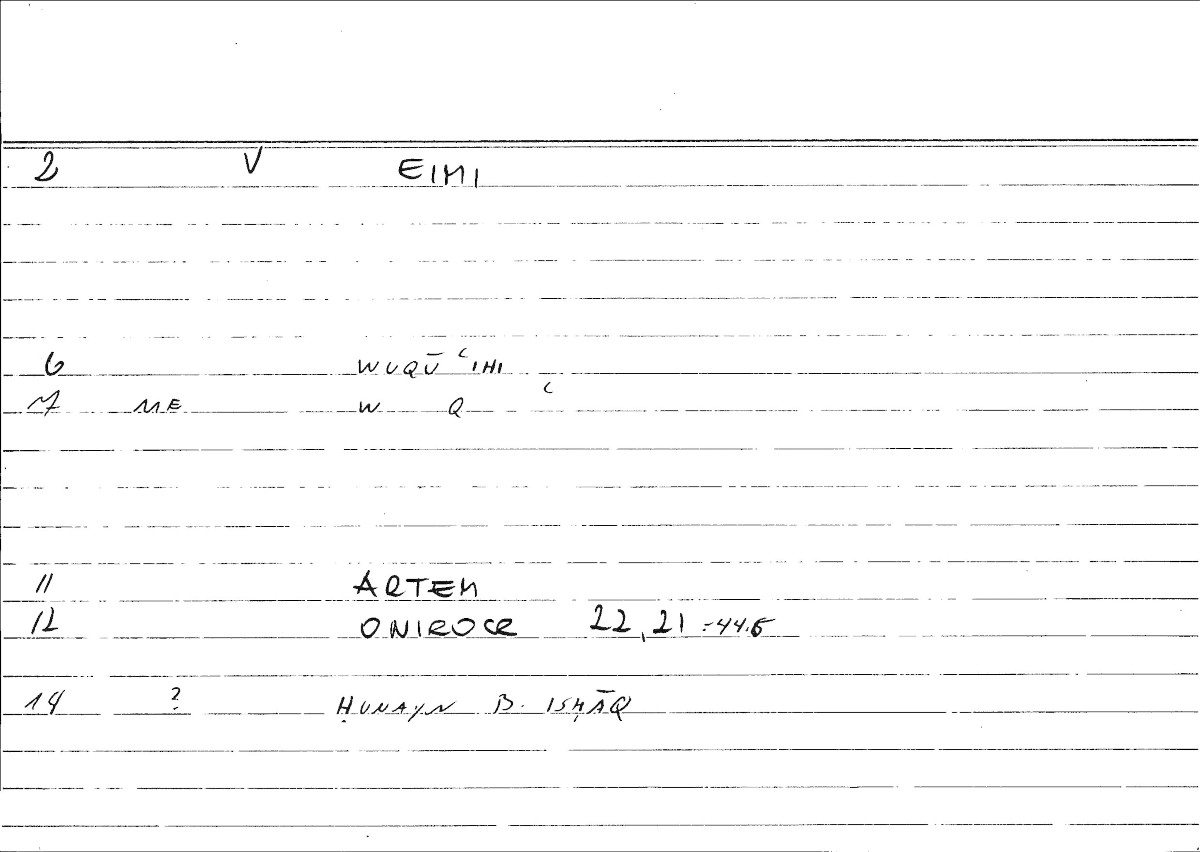 2 V EIMI
6 WUQŪ ʿIHI
7 ME W Q ʿ
11 ARTEM
12 ONIROCR 22,21 =44.5
14 ? ḤUNAYN B. ISḤĀQ